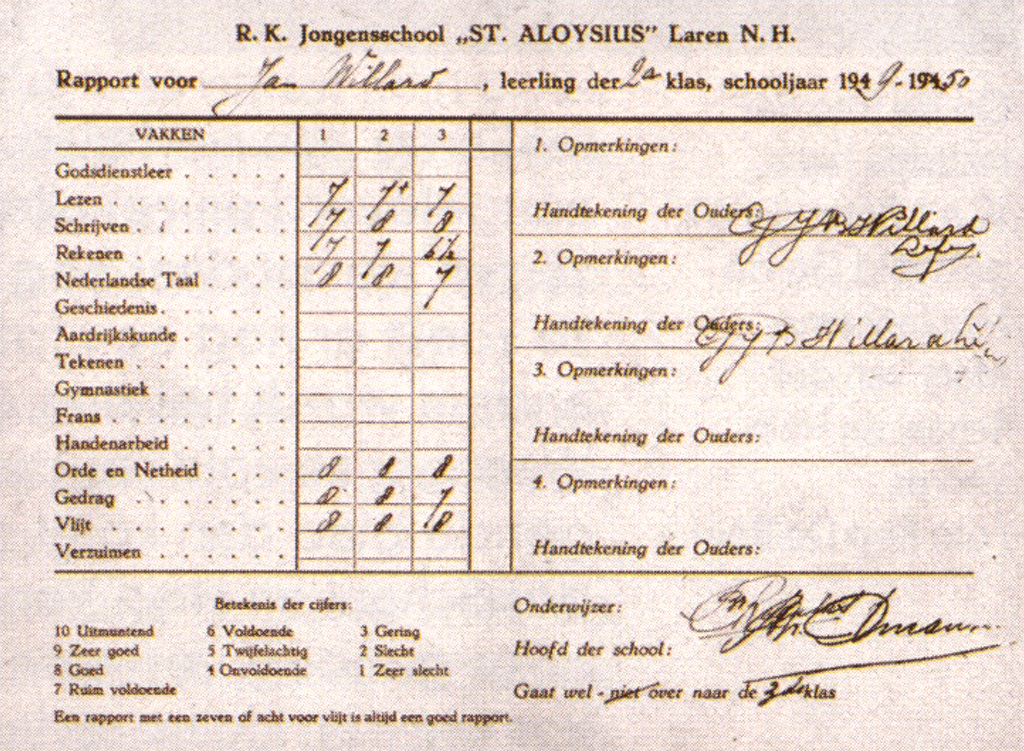 R. K. Jongensschool „ST. ALOYSIUS” Laren N. H.
Rapport voor Jan Willard, leerling der 2a klas, schooljaar 1949-1950
VAKKEN 1 2 3
Godsdienstleer
Lezen 7 7+ 7
Schrijven 7 8 8
Rekenen 7 7 6½
Nederlandse Taal 8 8 7
Geschiedenis
Aardrijkskunde
Tekenen
Gymnastiek
Frans
Handenarbeid
Orde en Netheid 8 8 8
Gedrag 8 8 7
Vlijt 8 8 8
Verzuimen
1. Opmerkingen:
Handtekening der Ouders: Willard
2. Opmerkingen:
Handtekening der Ouders: Willard
3. Opmerkingen:
Handtekening der Ouders:
4. Opmerkingen:
Handtekening der Ouders:
Betekenis der cijfers:
10 Uitmuntend 6 Voldoende 3 Gering
9 Zeer goed 5 Twijfelachtig 2 Slecht
8 Goed 4 Onvoldoende 1 Zeer slecht
7 Ruim voldoende
Een rapport met een zeven of acht voor vlijt is altijd een goed rapport.
Onderwijzer:
Hoofd der school:
Gaat wel - niet over naar de 3de klas